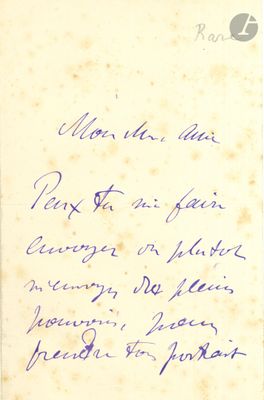 Rare
Mon cher ami
Peux tu me faire
envoyer ou plutot
m'envoyer des pleins
pouvoirs, pour
prendre ton portrait